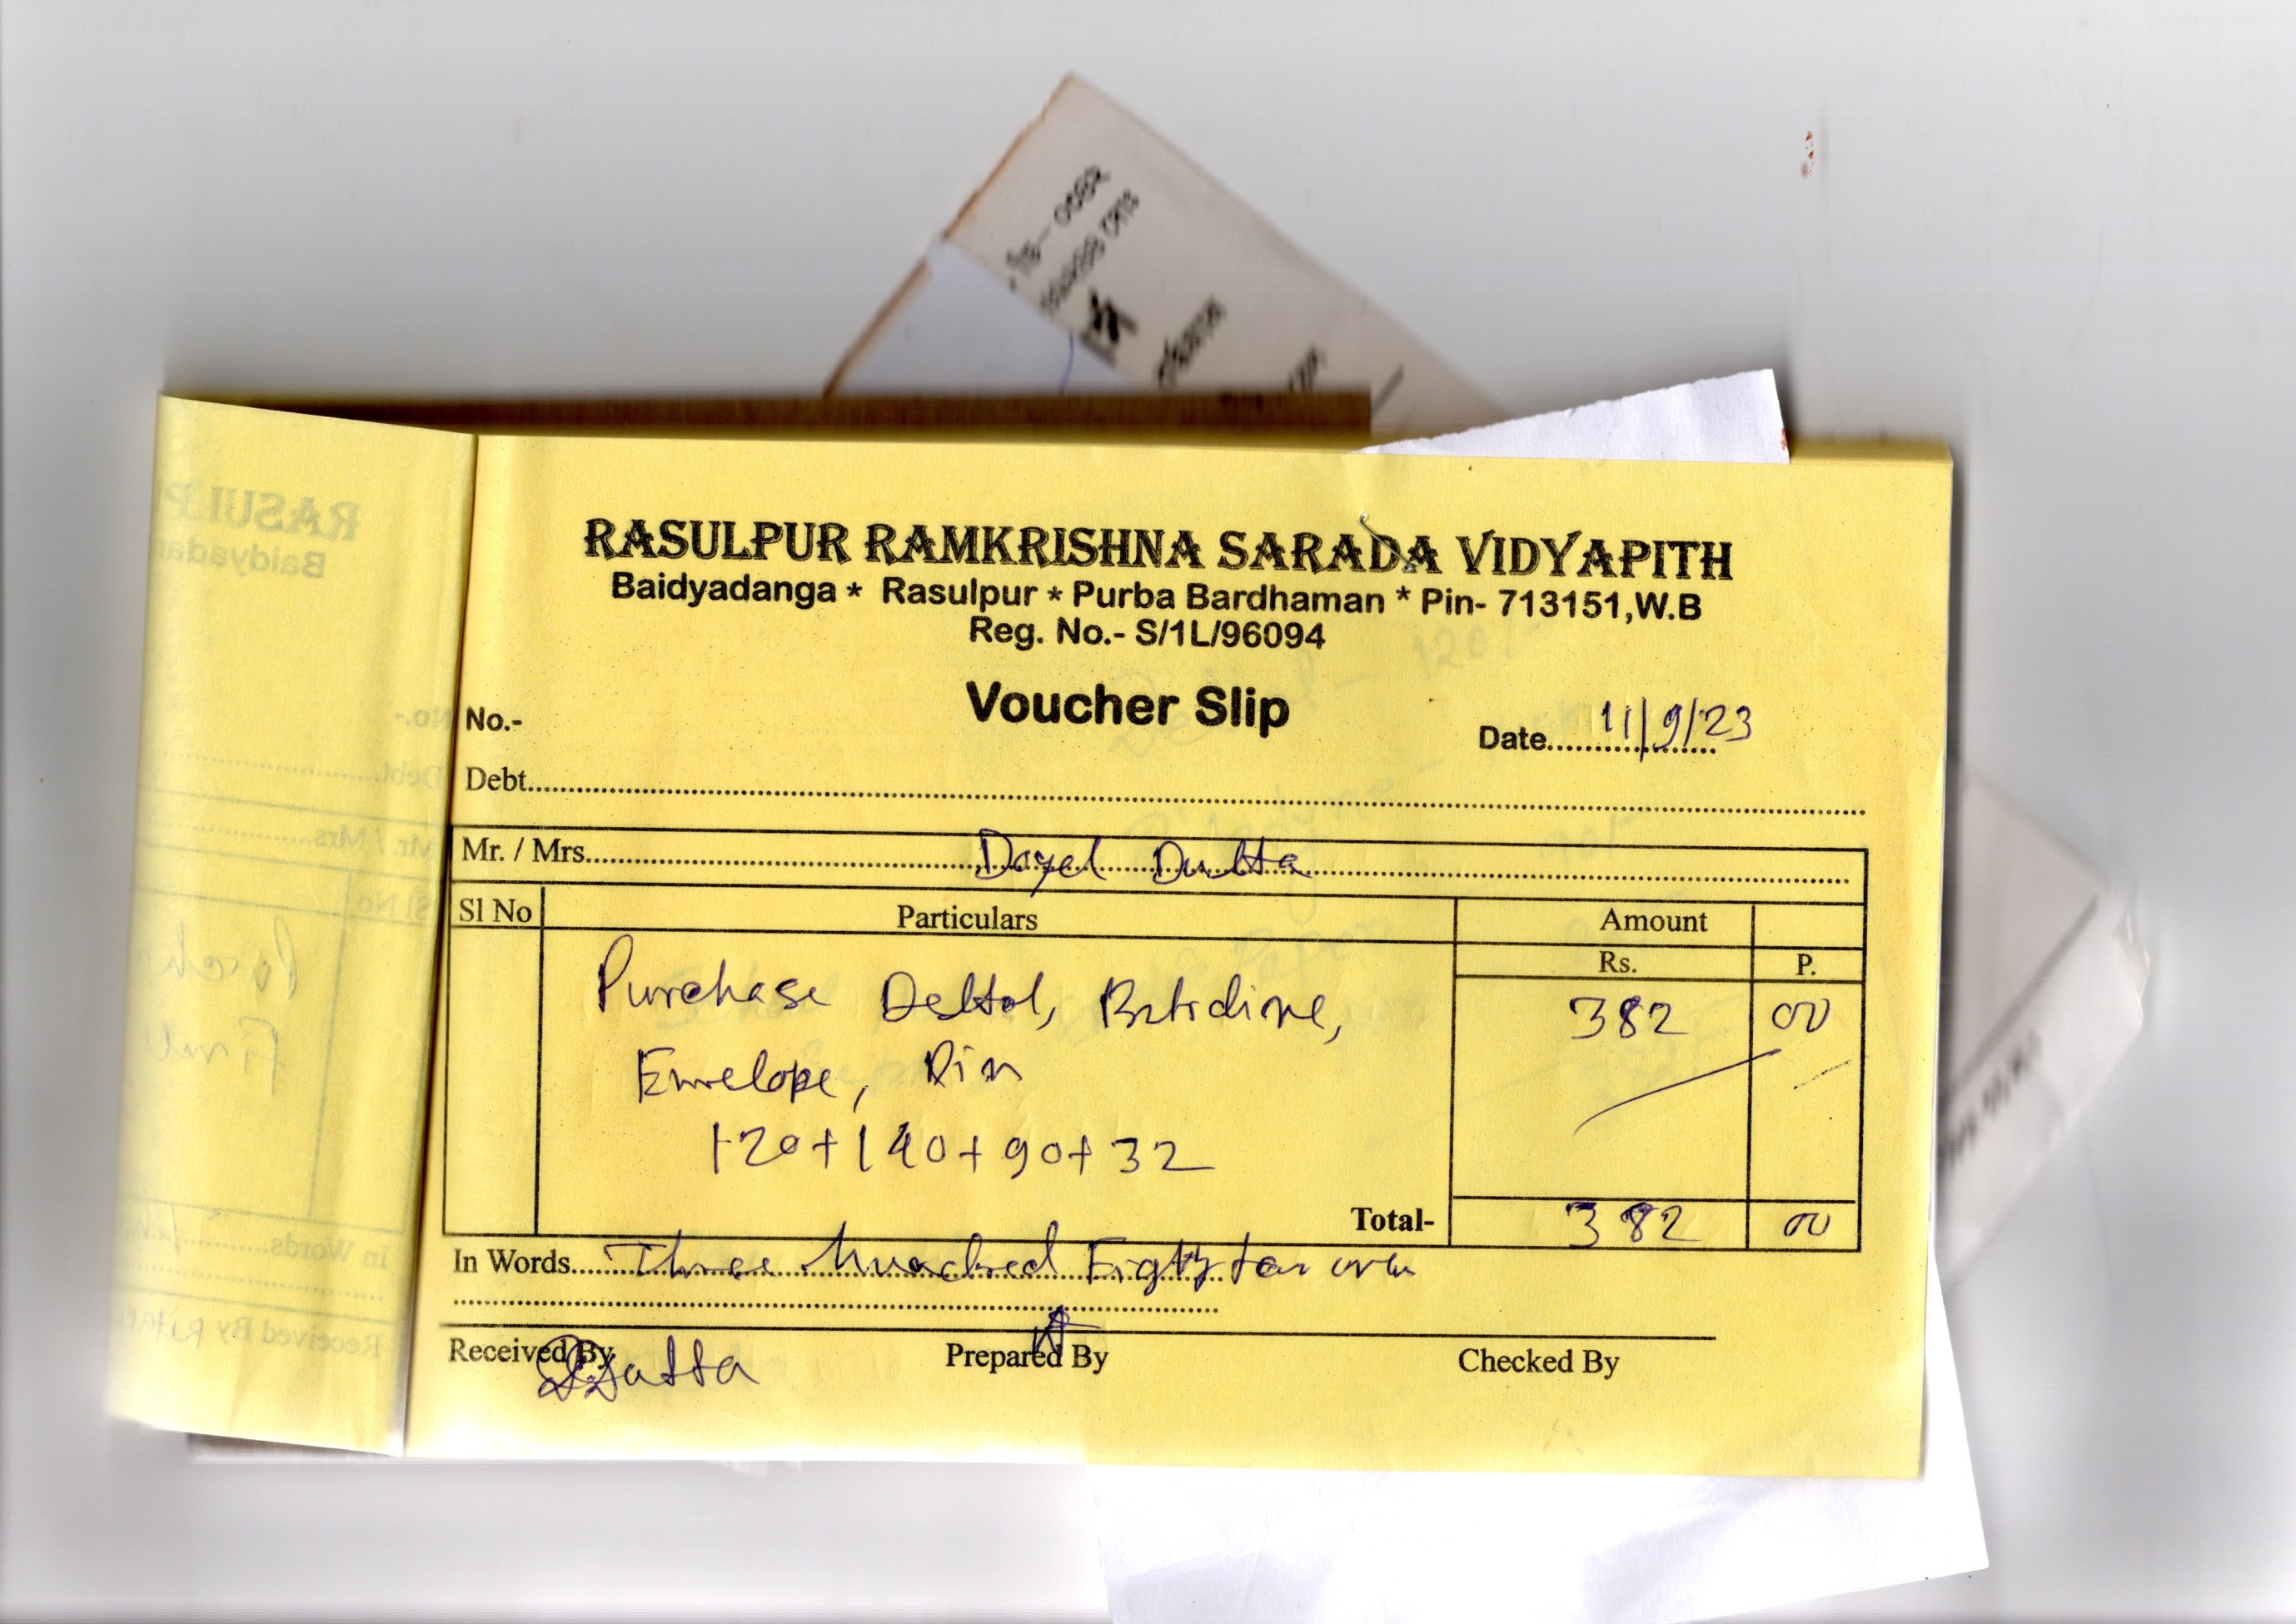 RASULPUR RAMKRISHNA SARADA VIDYAPITH
Baidyadanga * Rasulpur * Purba Bardhaman * Pin- 713151,W.B
Reg. No.- S/1L/96094
Voucher Slip
No.-
Date 11/9/23
Debt
Mr. / Mrs. Doyel Dutta
Sl No Particulars Amount
Rs. P.
Purchase Dettol, Betidine, 382 00
Envelope, Pin
120+140+90+32
Total- 382 00
In Words Three hundred Eigty
Received By Prepared By Checked By
DDutta